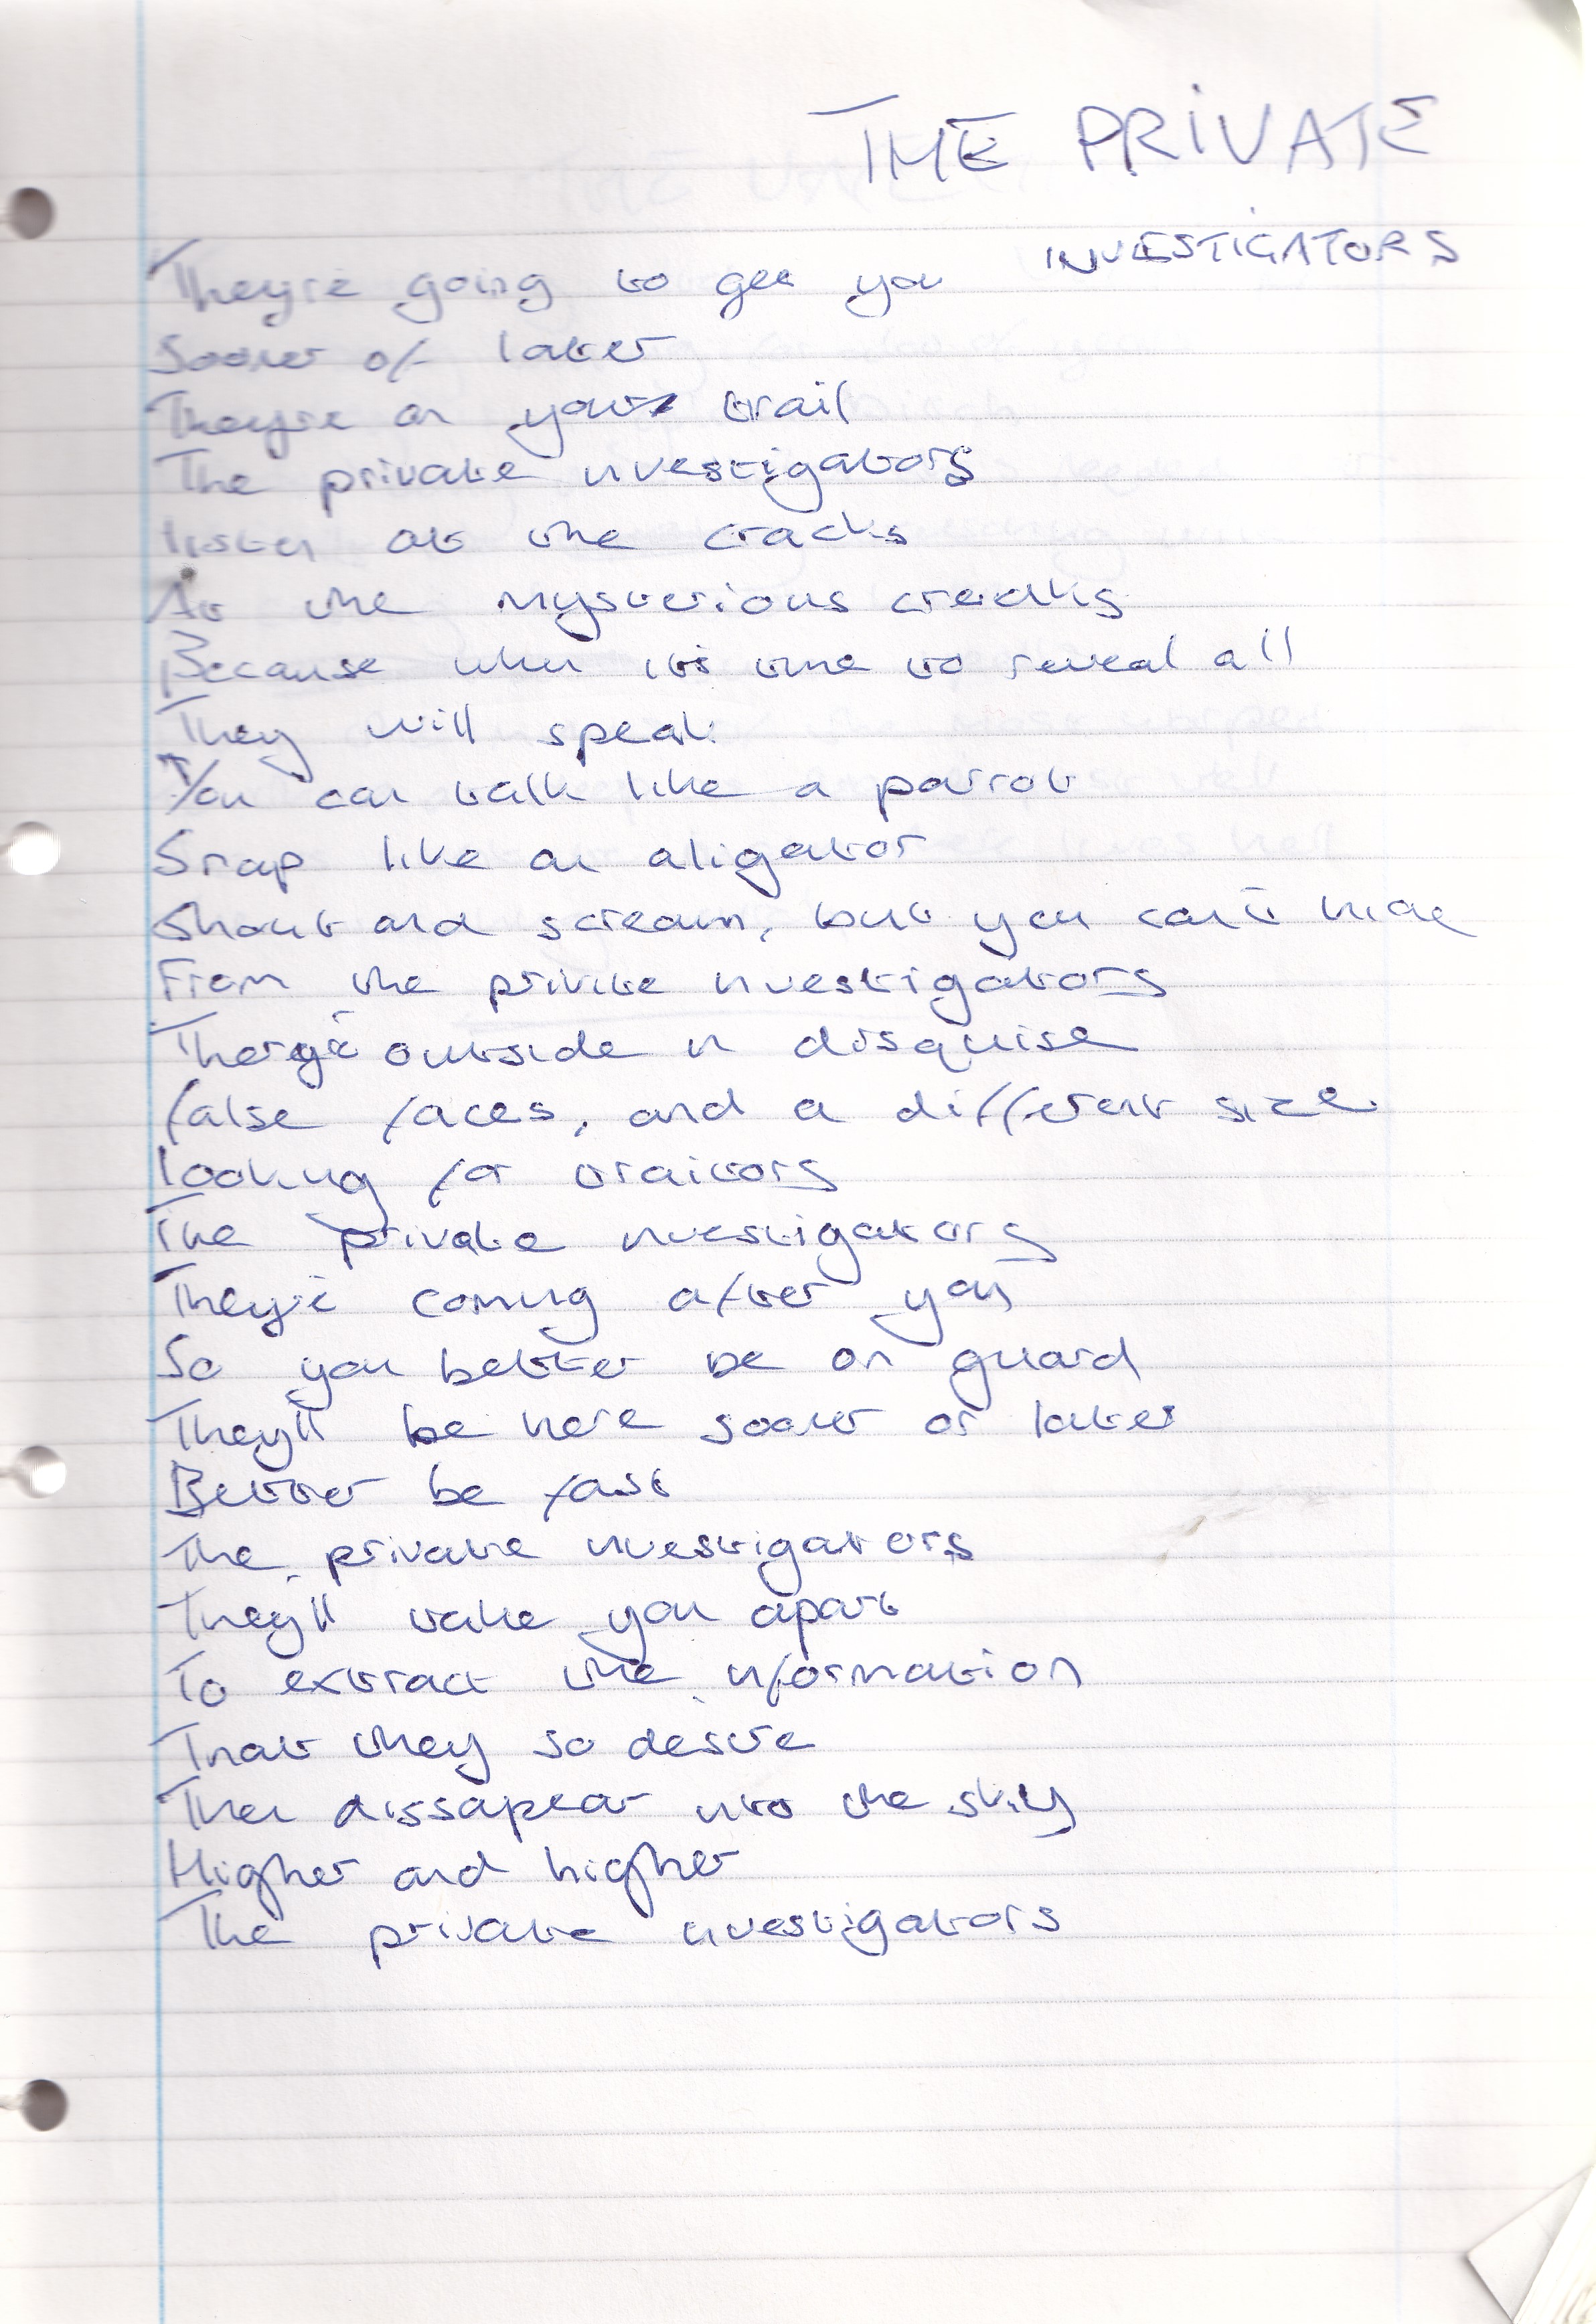 THE PRIVATE
INVESTIGATORS
They're going to get you
Sooner or later
They're on your trail
The private investigators
listen at the cracks
At the mysterious creaks
Because when its time to reveal all
They will speak
You can talk like a parrot
Snap like an aligator
Shout and scream, but you can't hide
From the privite investigators
They're outside in disguise
false faces, and a different size
looking for traitors
The private investigators
They're coming after you
So you better be on guard
They'll be here sooner or later
Better be fast
The private investigators
They'll take you apart
To extract the information
That they so desire
Then dissapear into the sky
Higher and higher
The private investigators